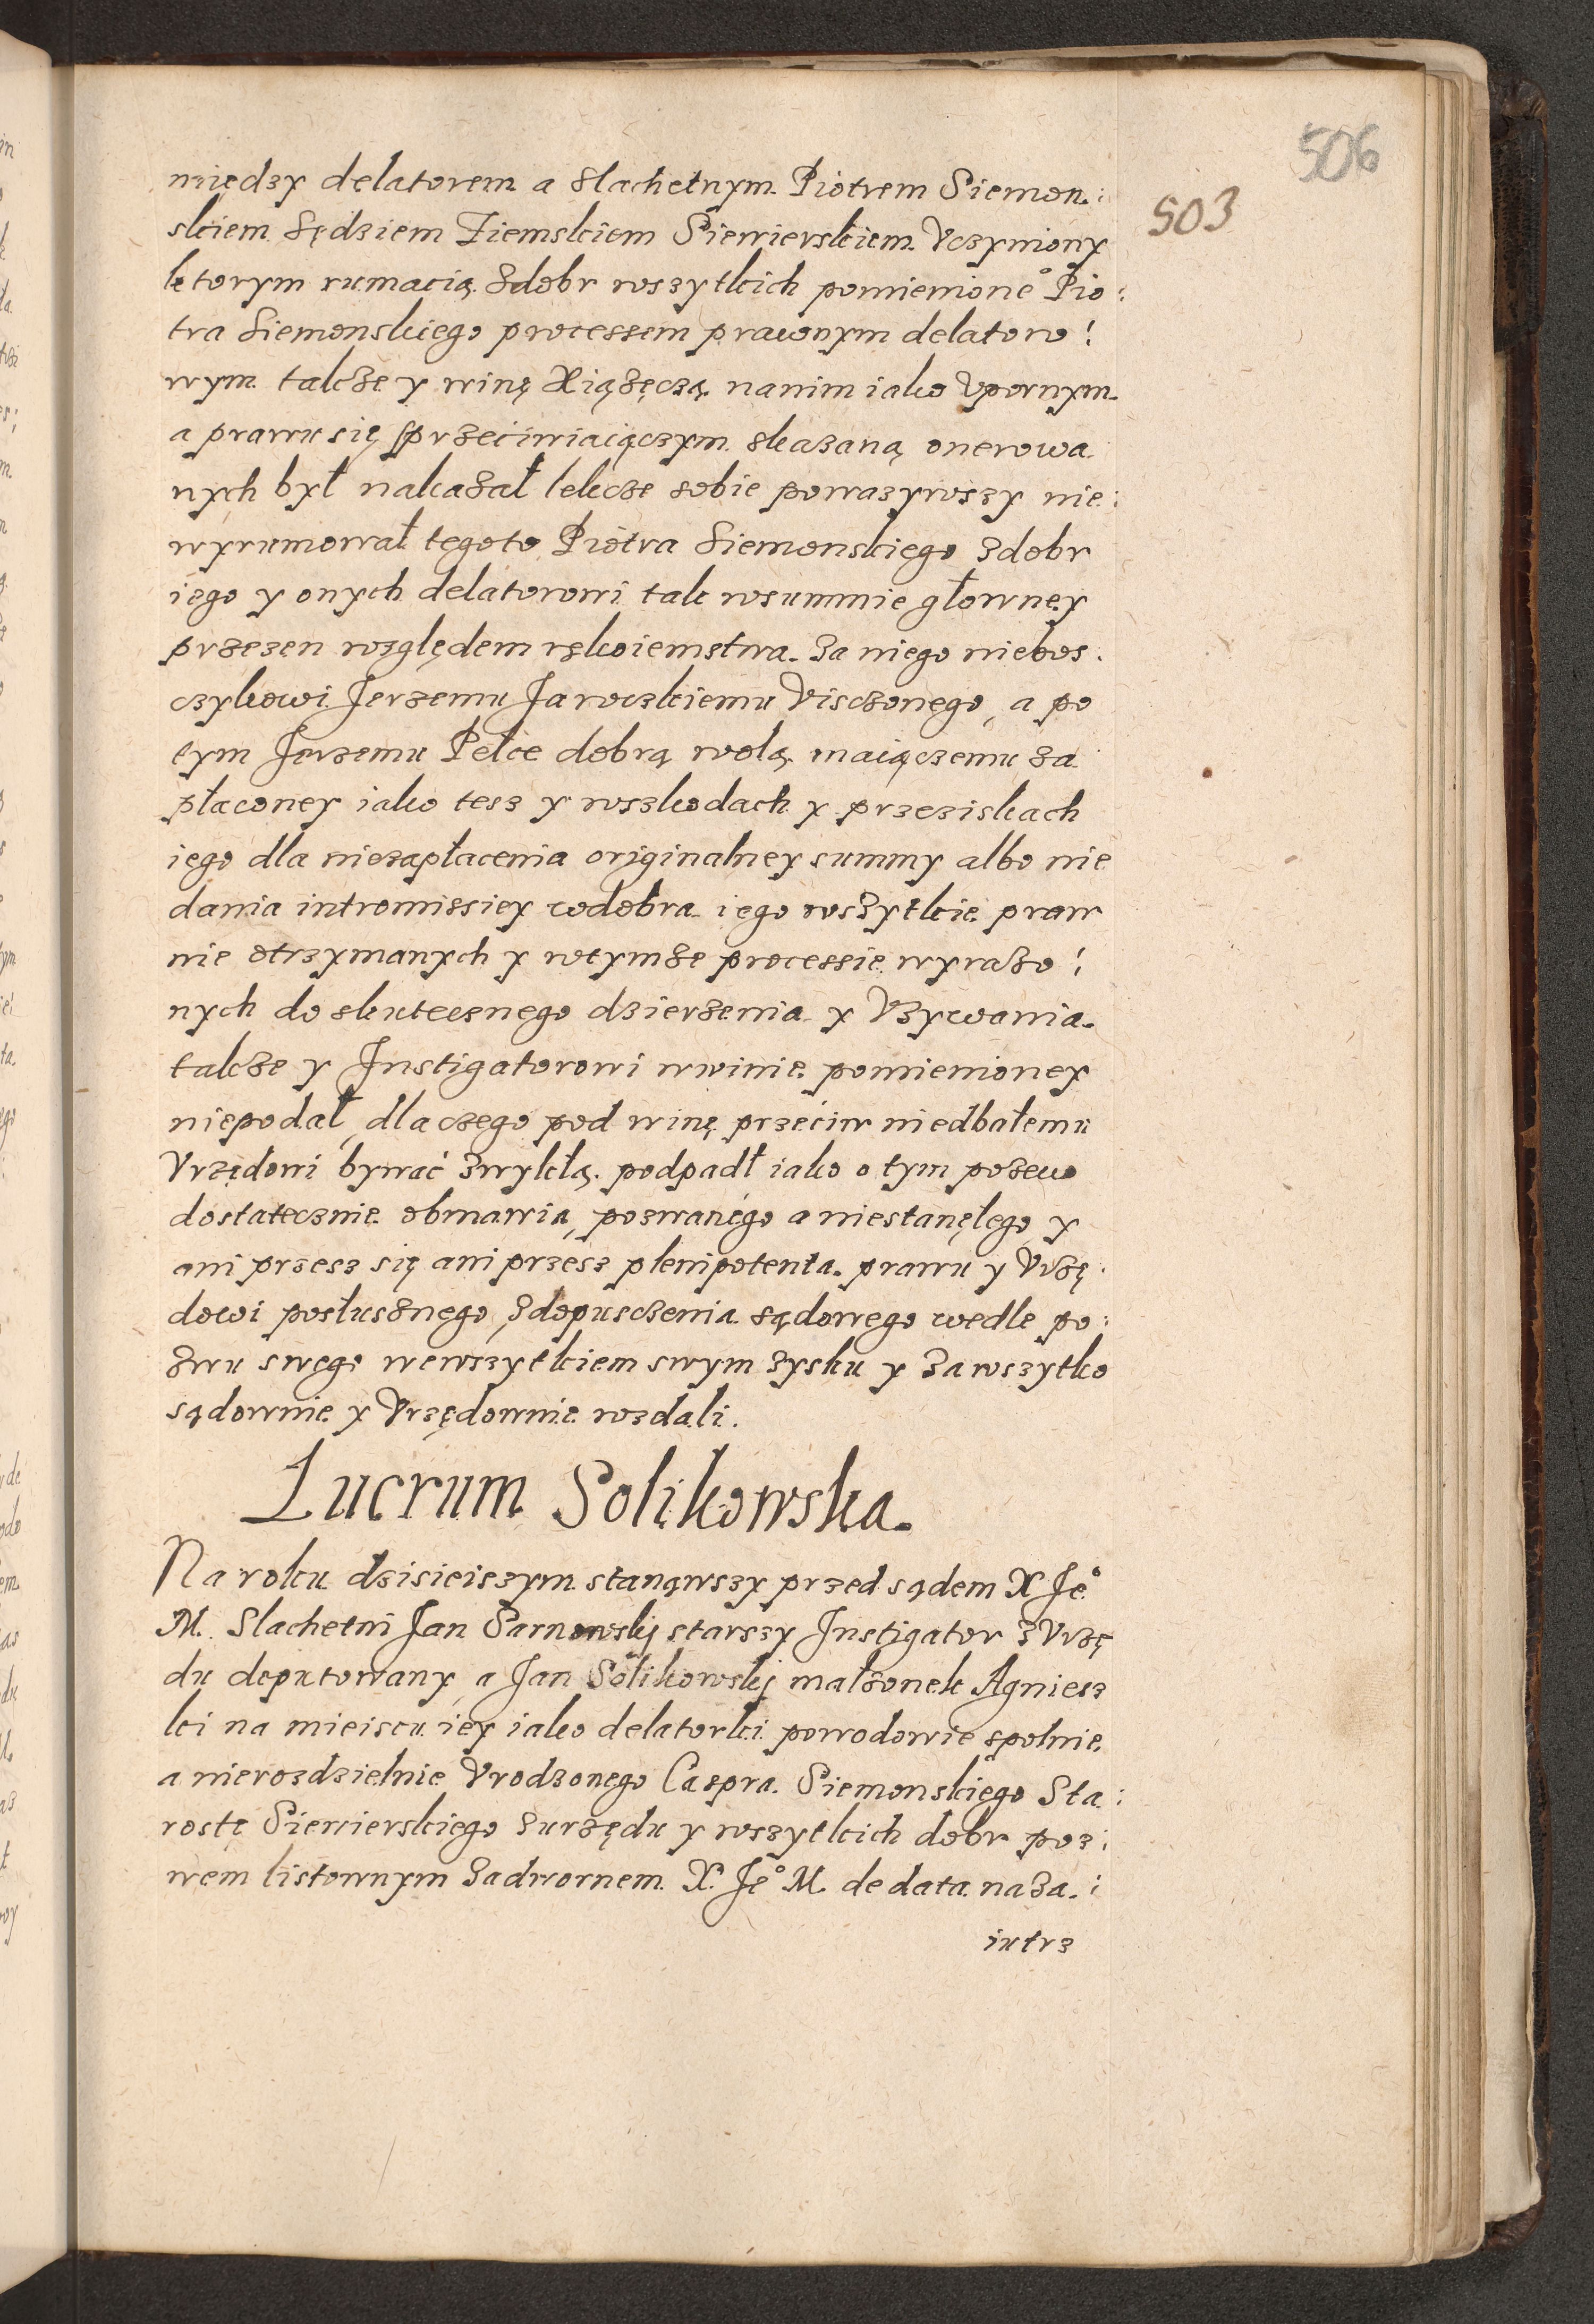 506
503
między delatorem a slachetnym Piotrem Siemon:
skiem sędziem Ziemskiem Siewierskiem Vczyniony
ktorym rumacią zdobr wszytkich pomienione° Pio:
tra Siemonskiego processem prawnym delatoro:
wym takze y winę Xiązęczą nanim iako Vpornym
a prawu się sprzeciwiaiączym skazaną onerowa
nych był nakazał lekcze sobie powazywszy nie:
wyrumował tegoto Piotra Siemonskiego zdobr
iego y onych delatorowi tak wsummie głowney
przezen względem rękoiemstwa za niego niebos:
czykowi Jerzemu Jaroczkiemu Visczonego, a po
tym Jerzemu Pełce dobrą wolą maiączemu za
płaconey iako tesz y wszkodach y przeziskach
iego dla niezapłacenia originalney summy albo nie
dania intromissiey wdobra iego wszytkie praw
nie otrzymanych y wtymze processie wyrazo:
nych do skutecznego dzierzenia y Vzywania
takze y Instigatorowi wwinie pomienioney
niepodał, dla czego pod winę przeciw niedbałemu
Vrzędowi bywać zwykłą podpadł iako o tym pozew
dostatecznie obmawia, pozwanego a niestanęłego y
ani przesz się ani przesz plenipotenta prawu y Vrzę:
dowi posłusznego, zdopusczenia sądowego wedle po:
zwu swego wewszytkiem swym zysku y zawszytko
sądownie y Vrzędownie wzdali.
Lucrum Solikowska
Na roku dzisieiszym stanąwszy przed sądem X Je°
M. Slachetni Jan Sarnowskj starszy Instigator z Vrzę
du deputowany, a Jan Solikowskj małzonek Agniesz
ki na mieiscu iey iako delatorki powodowie spolnie
a nierozdzielnie Vrodzonego Caspra Siemonskiego Sta:
rostę Siewierskiego zurzędu y wszytkich dobr poz:
wem listownym zadwornem X. Je° M. de data naza:
iutrz